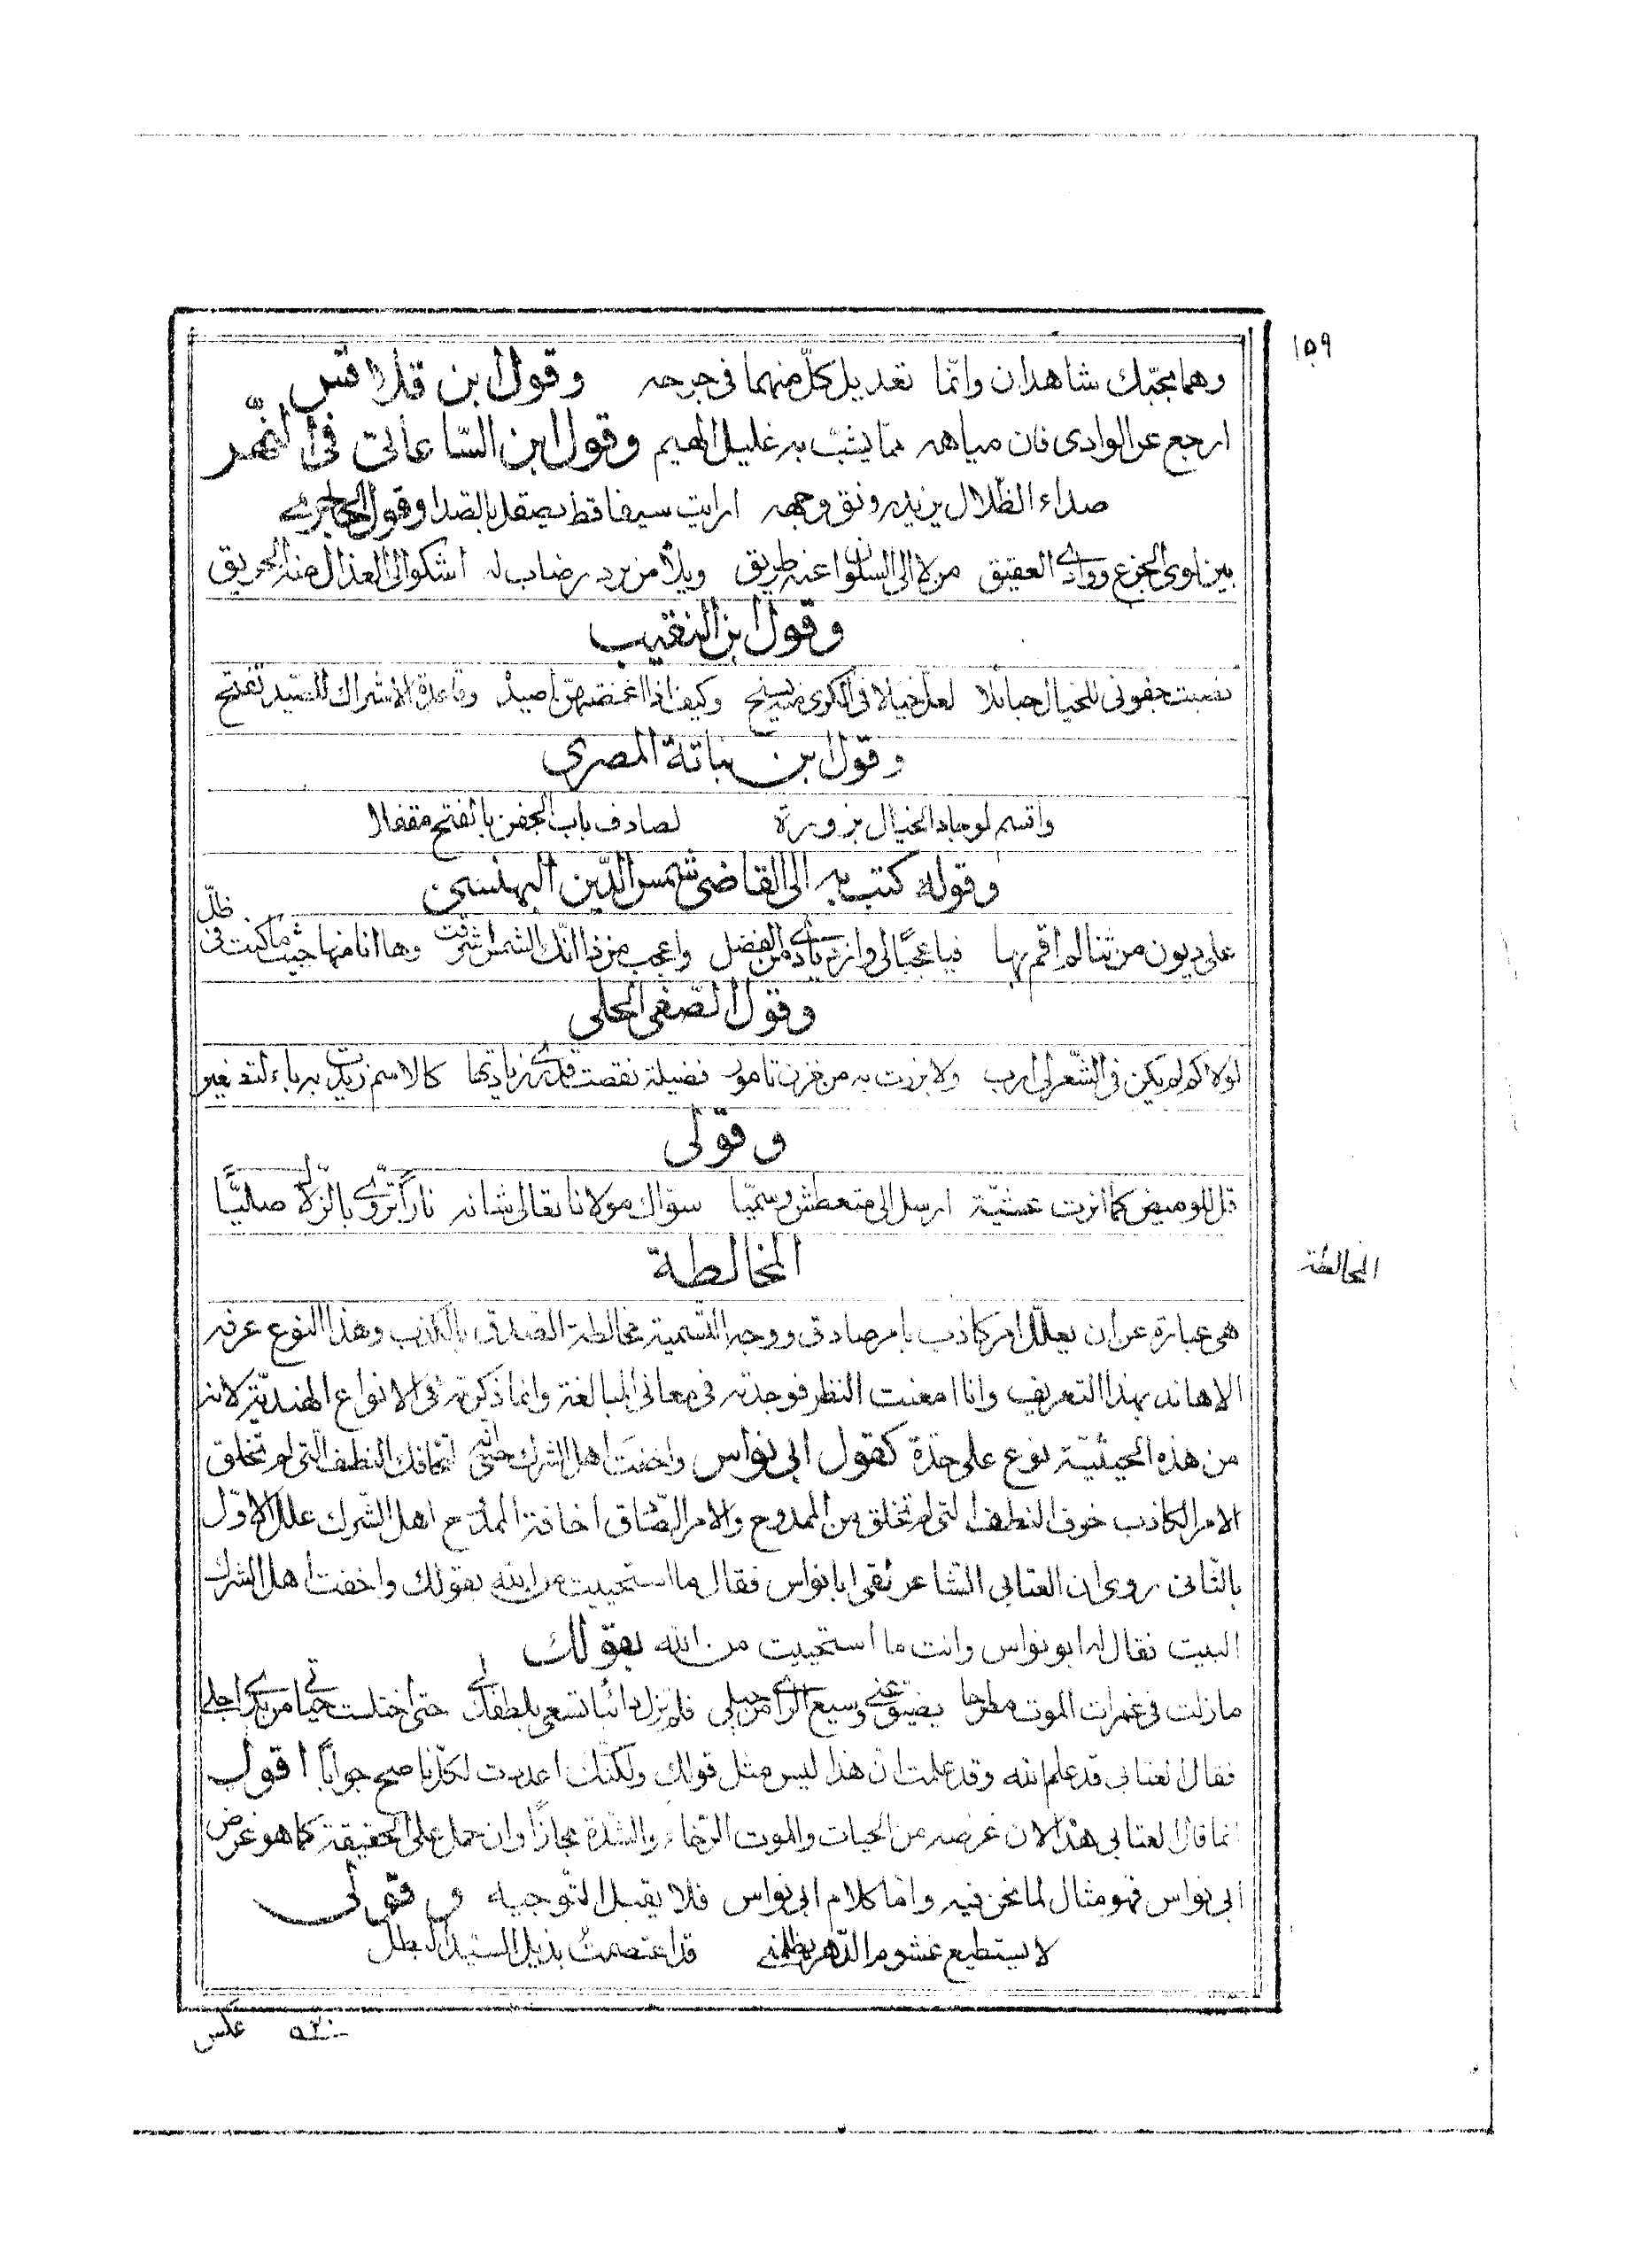 ١٥٩
وهما بحبّك شاهدان وانّما تعديل كلّ منهما فى جرحه وقول ابن قلاقس
ارجع عن الوادى فان مياهه مما يشبّ به غليل الهيم وقول ابن السّاعاتى فى النّهر
صداء الظّلال يزيد رونق وجهه ارايت سيفا قط يصقل بالصّدا وقول الحاجرى
بين لوى الجزع ووادى العقيق من لا الى السلوان عنه طريق ويلاه من برد رضاب له اشكو الى العذال منه الحريق
وقول ابن النقيب
نصبت جفونى للخيال حبائلا لعلّ خيالا فى الكرى منه يسنح وكيف اذا اغمضتهنّ اصيد وقاعدة الاشراك للصّيد تفتح
وقول ابن نباتة المصرى
واقسم لو جاد الخيال بزورة لصادف باب الجفن بالفتح مقفلا
وقوله كتب به الى القاضى شمس الدّين البهنسى
علىّ ديون من ثنا لم اقم بها فيا عجبًا لى وازديادى من الفضل واعجب من ذا انّك الشمس اشرقت وها انا منها حيث ما كنت فى ظلّ
وقول الصّفى الحلى
لولاكم لم يكن فى الشّعر لى ارب ولا برزت به من غرن تامور فضيلة نقصت قدرى زيادتها كالاسم زيدت به ياء لتصغير
وقولى
قل للوميض كما انرت عشيّة ارسل الى متعطش وسميّا سؤاك مولانا تعالى شانه نارًا تروّى بالزلال صليًّا
المخالطة
المخالطة
هى عبارة عن ان يعلّل امر كاذب بامر صادق ووجه التسمية مخالطة الصدق بالكذب وهذا النوع عرفه
الاهاند بهذا التعريف وانا امعنت النظر فوجدته فى معانى المبالغة وانما ذكرته فى الانواع الهنديّة لانه
من هذه الحيثيّة نوع على حدة كقول ابى نواس واخفت اهل الشرك حتى انّه لتخافك النطف الّتى لم تخلق
الامر الكاذب خوف النطف الّتى لم تخلق من الممدوح والامر الصّادق اخافة الممدوح اهل الشّرك علل الاوّل
بالثّانى روى ان العتابى الشاعر لقى ابا نواس فقال ما استحييت من الله بقولك واخفت اهل الشرك
البيت فقال له ابو نواس وانت ما استحييت من الله بقولك
مازلت فى غمرات الموت مطرحا يضيق عنى وسيع الراى من حيلى فلم تزل دائبا تسعى بلطفك لى حتى اختلست حياتى من يدى اجلى
فقال العتابى قد علم الله وقد علمت ان هذا ليس مثل قولك ولكنّك اعددت لكلّ ناصح جوابًا اقول
انما قال العتابى هذا لان غرضه من الحيات والموت الرّخاء والشدّة مجازًا وان حمل على الحقيقة كما هو غرض
ابى نواس فهو مثال لما نحن فيه وامّا كلام ابى نواس فلا يقبل التّوجيه وقولى
لا يستطيع غشوم الدّهر يظلمنى قد اعتصمت بذيل السّيد البطل
عكس